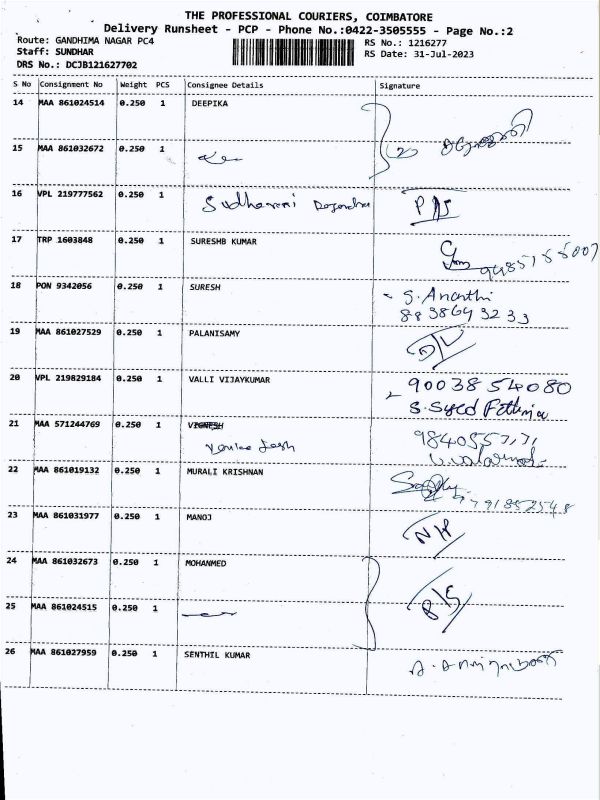 THE PROFESSIONAL COURIERS, COIMBATORE
Delivery Runsheet - PCP - Phone No.:0422-3505555 - Page No.:2
Route: GANDHIMA NAGAR PC4 RS No.: 1216277
Staff: SUNDHAR RS Date: 31-Jul-2023
DRS No.: DCJB121627702
S No Consignment No Weight PCS Consignee Details Signature
14 MAA 861024514 0.250 1 DEEPIKA
15 MAA 861032672 0.250 1
16 VPL 219777562 0.250 1
17 TRP 1603848 0.250 1 SURESHB KUMAR
18 PON 9342056 0.250 1 SURESH S. Ananthi
8838693233
19 MAA 861027529 0.250 1 PALANISAMY
20 VPL 219829184 0.250 1 VALLI VIJAYKUMAR 9003854080
S. Syed Fathima
21 MAA 571244769 0.250 1 VIGNESH
22 MAA 861019132 0.250 1 MURALI KRISHNAN
23 MAA 861031977 0.250 1 MANOJ
24 MAA 861032673 0.250 1 MOHANMED
25 MAA 861024515 0.250 1
26 MAA 861027959 0.250 1 SENTHIL KUMAR